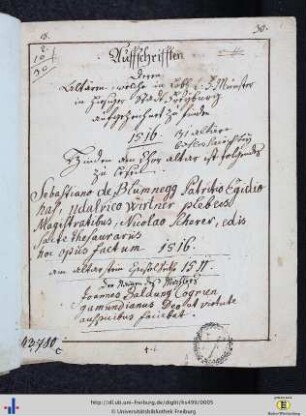 18.
30.
Auffschrifften
Deren
Altären, welche in
in hiesiger Statt Freyburg
auffgezeichnet zu finden
1516.
31 altäre
Hinden am Chor altar ist folgendes
zu lesen.
Sebastiano de Blumnegg Patritio Egidio
has, Udalrico wirtner plebeis
Magistratibus, Nicolao Scherer, edis
sacre thesaurariis
hoc opus factum 1516.
am altarstein 1511.
Der Namen deß Meisters
Joannes Baldung Cogno
gamundianus Deo et virtute
auspicibus faciebat.
http://dl.ub.uni-freiburg.de/diglit/hs498/0005
© Universitätsbibliothek Freiburg